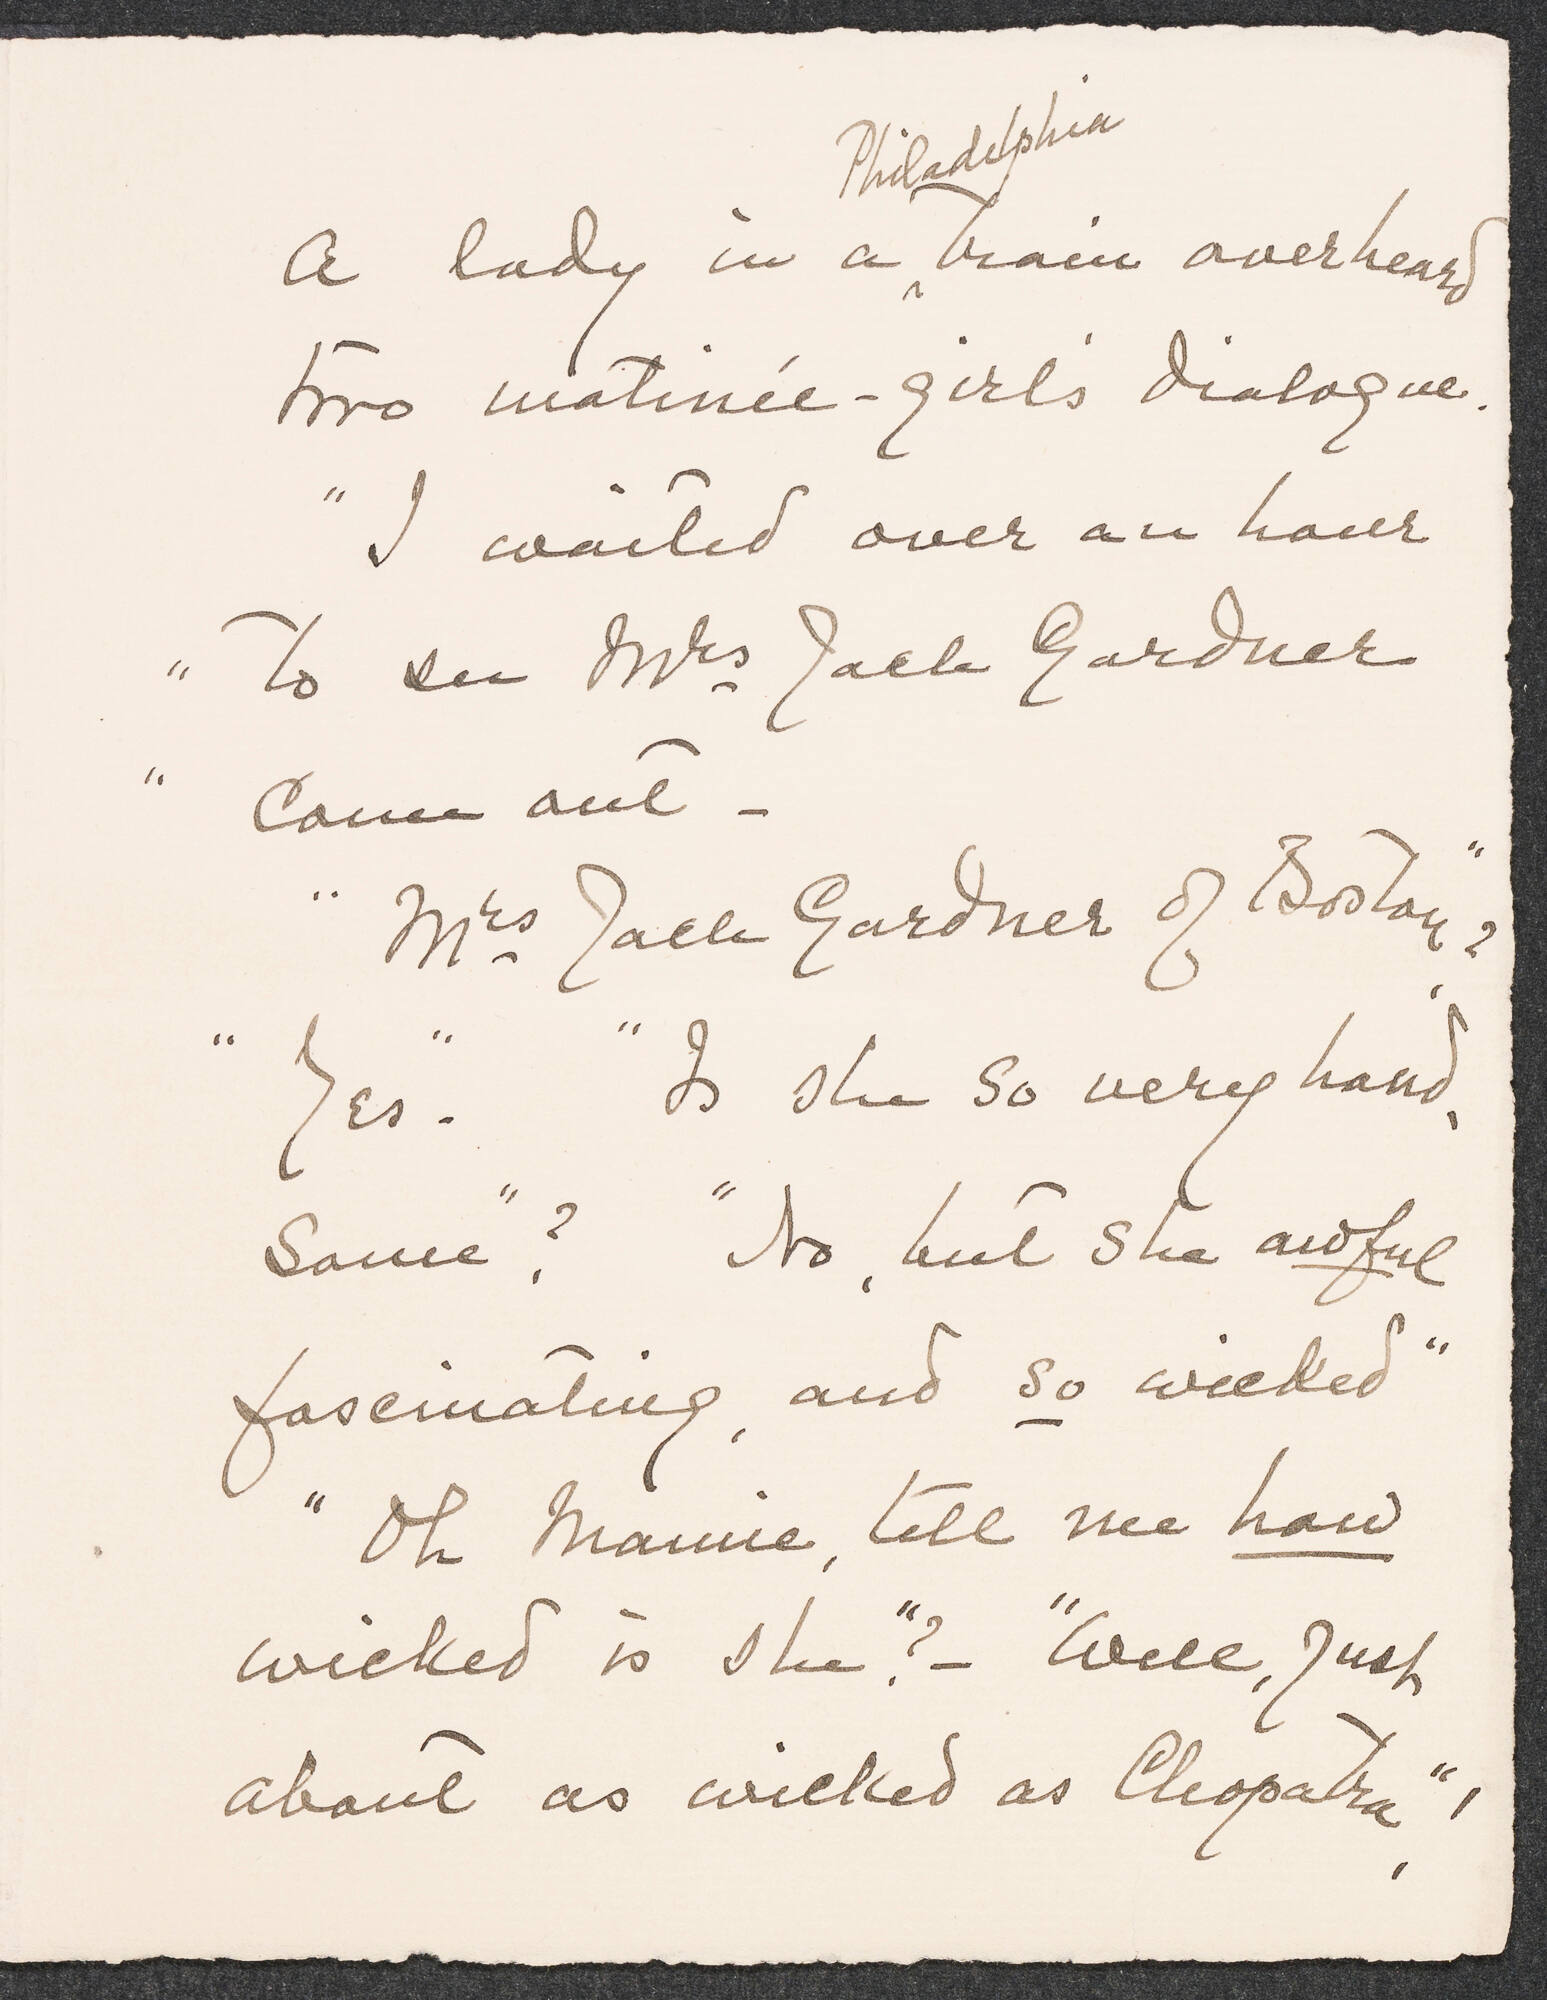 Philadelphia
A lady in a ‸ train overheard
two matinée-girl's dialogue.
"I waited over an hour
"to see Mrs Jack Gardner
" Come out -
"Mrs Jack Gardner of Boston"?
"Yes". "Is she so very hand,
some"? "No, but she awful
fascinating, and so wicked"
"Oh Mamie, tell me how
wicked is she"?- "Well, just
about as wicked as Cleopatra,",